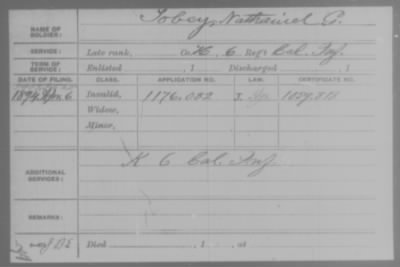 NAME OF SOLDIER: Tobey, Nathaniel G.
SERVICE: Late rank, Co. K, 6 Reg't Cal. Inf.
TERM OF SERVICE: Enlisted , 1 Discharged , 1
DATE OF FILING. CLASS. APPLICATION NO. LAW. CERTIFICATE NO.
Invalid, 1176.082
Widow,
Minor,
ADDITIONAL SERVICES: K 6 Cal. Inf.
REMARKS:
Died , 1 , at